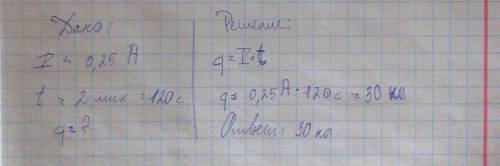 Дано:
I = 0,25 А
t = 2 мин. = 120 с
q = ?
Решение:
q = I · t
q = 0,25 А · 120 с = 30 кл
Ответ: 30 кл.